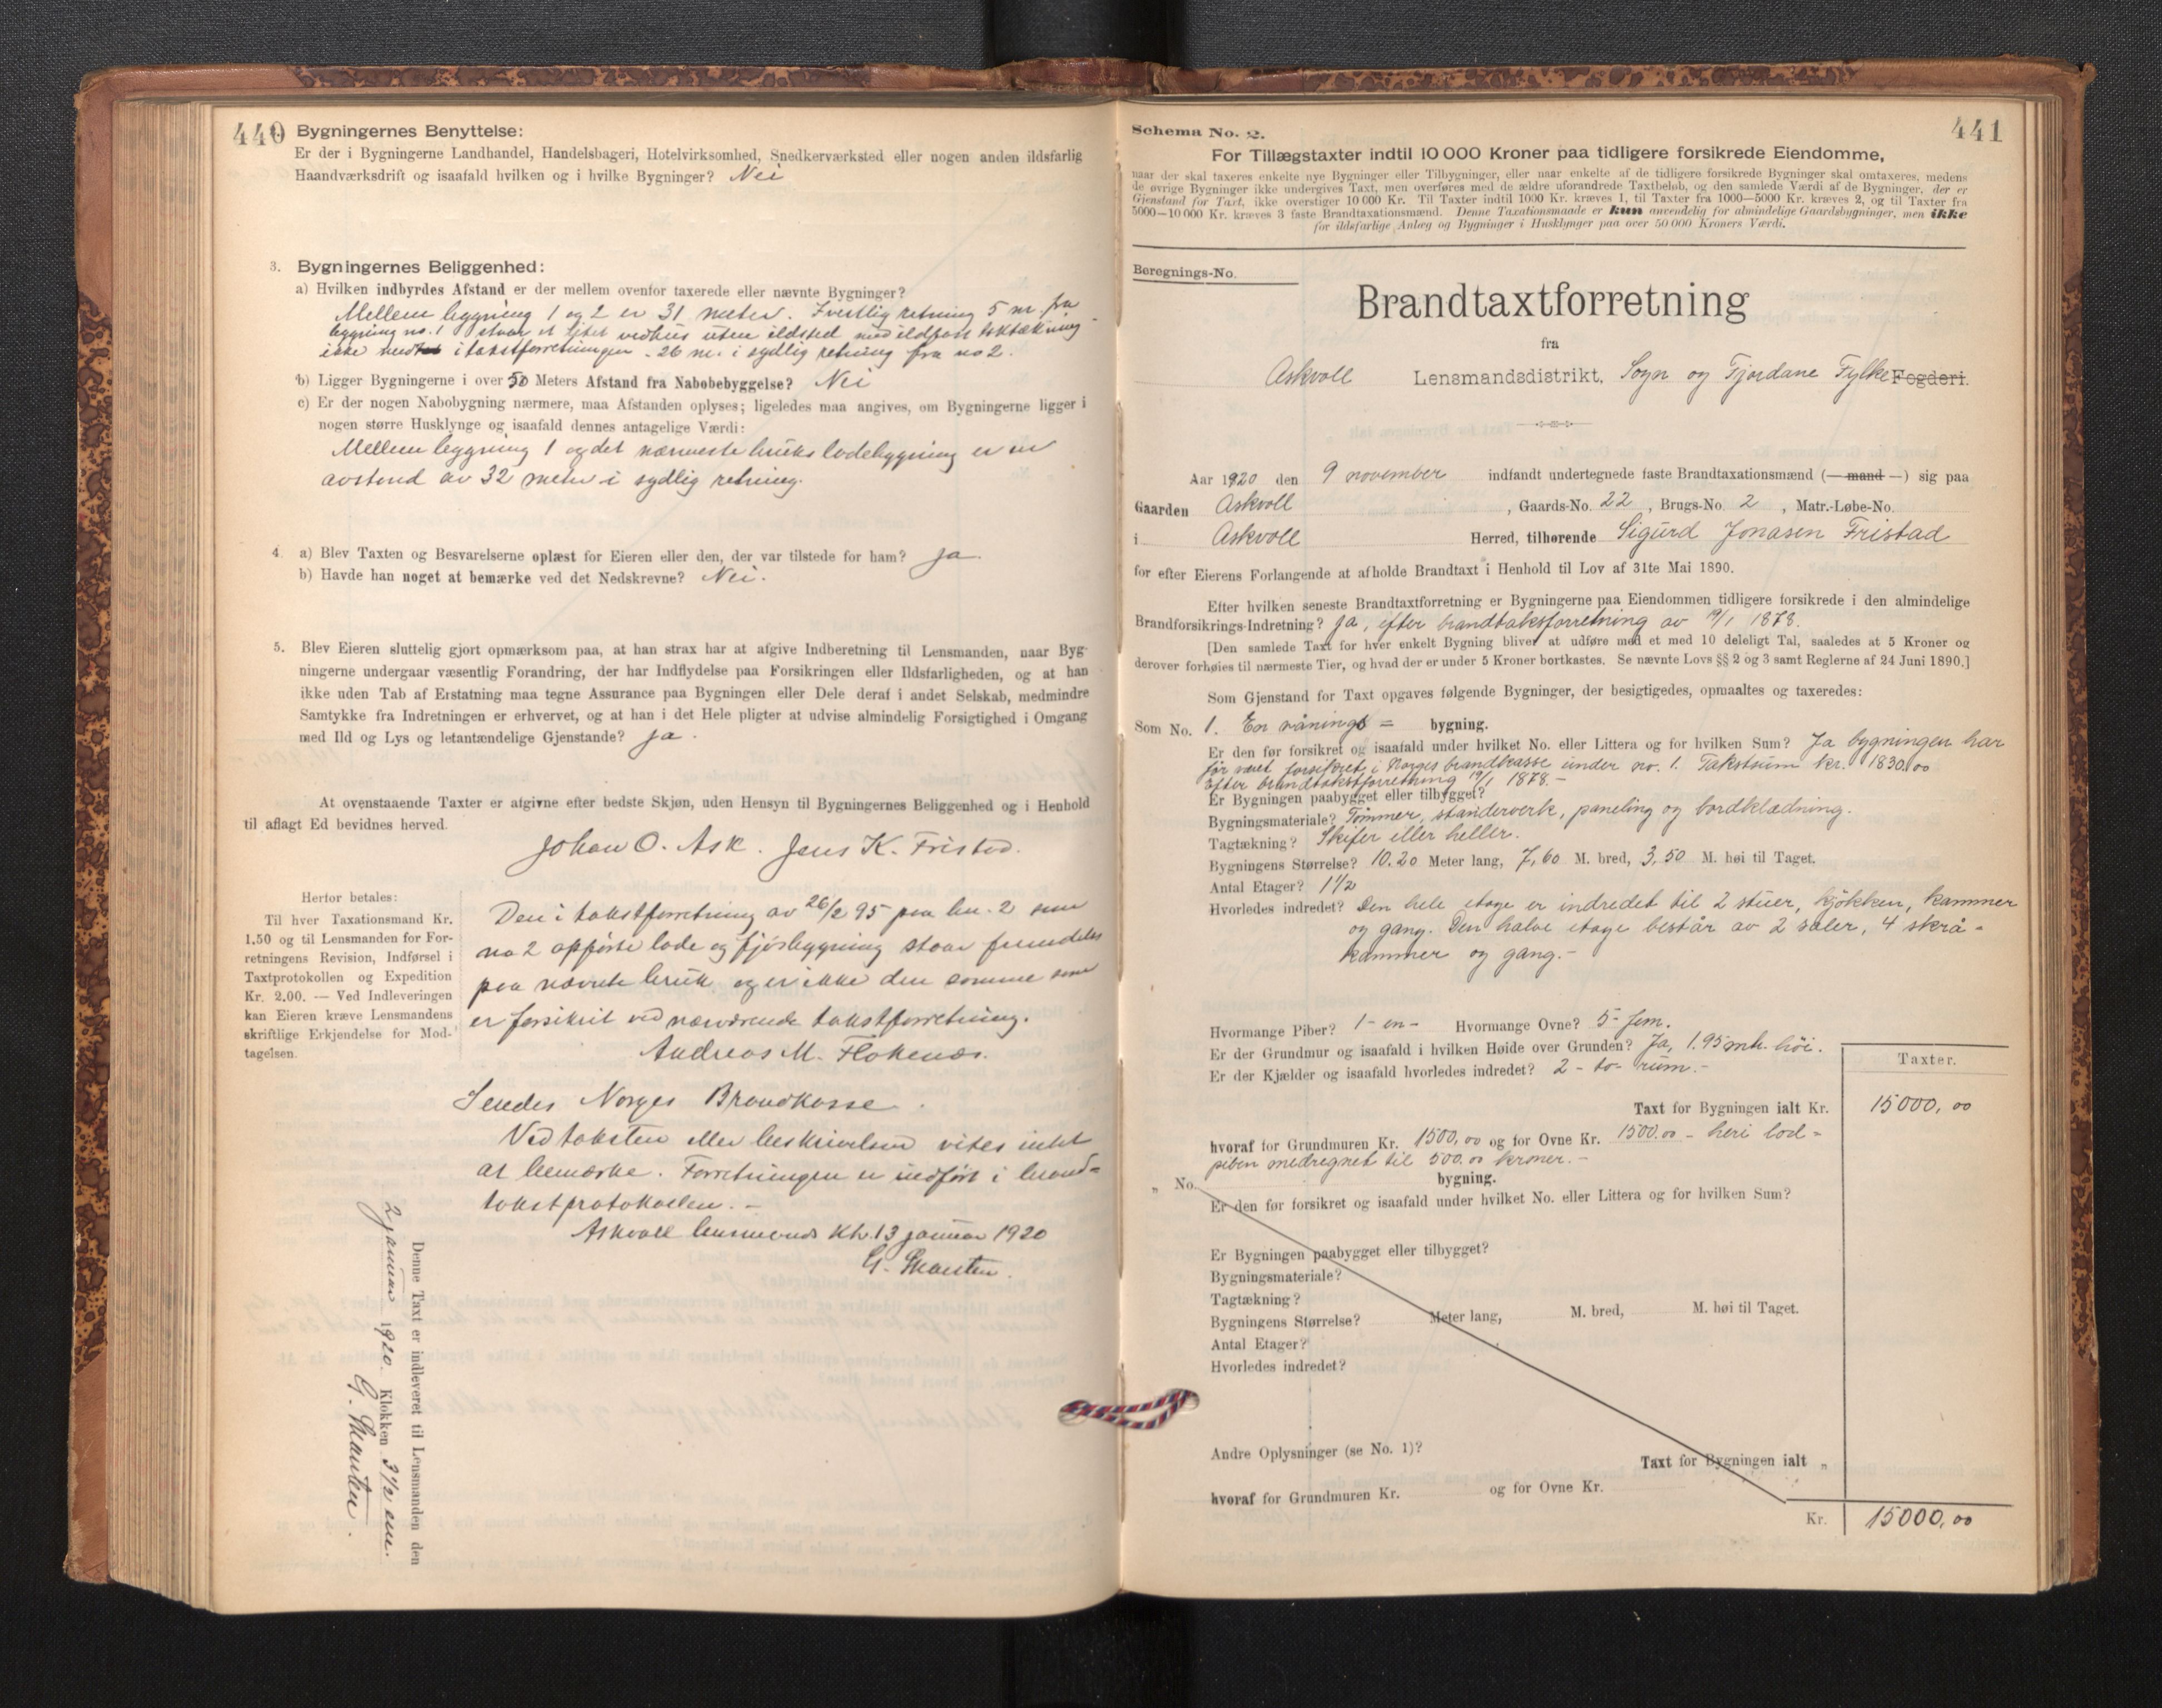 440
Bygningernes Benyttelse:
Er der i Bygningerne Landhandel, Handelsbageri, Hotelvirksomhed, Snedkerværksted eller nogen anden ildsfarlig
Haandværksdrift og isaafald hvilken og i hvilke Bygninger? Nei
3. Bygningernes Beliggenhed:
a) Hvilken indbyrdes Afstand er der mellem ovenfor taxerede eller nævnte Bygninger?
Mellem bygning 1 og 2 er 31 meter. I vestlig retning 5 m. fra
bygning no. 1 staar et litet vedhus uten ildsted med ildfast taktækning
ikke medtat i takstforretningen. 26 m. i sydlig retning fra no 2.
b) Ligger Bygningerne i over 50 Meters Afstand fra Nabobebyggelse? Nei
c) Er der nogen Nabobygning nærmere, maa Afstanden oplyses; ligeledes maa angives, om Bygningerne ligger i
nogen større Husklynge og isaafald dennes antagelige Værdi:
Mellem bygning 1 og det nærmeste bruks ladebygning er en
avstand av 32 meter i sydlig retning.
4. a) Blev Taxten og Besvarelserne oplæst for Eieren eller den, der var tilstede for ham? Ja
b) Havde han noget at bemærke ved det Nedskrevne? Nei.
5. Blev Eieren sluttelig gjort opmærksom paa, at han strax har at afgive Indberetning til Lensmanden, naar Byg-
ningerne undergaar væsentlig Forandring, der har Indflydelse paa Forsikringen eller Ildsfarligheden, og at han
ikke uden Tab af Erstatning maa tegne Assurance paa Bygningen eller Dele deraf i andet Selskab, medmindre
Samtykke fra Indretningen er erhvervet, og at han i det Hele pligter at udvise almindelig Forsigtighed i Omgang
med Ild og Lys og letantændelige Gjenstande? Ja.
At ovenstaaende Taxter er afgivne efter bedste Skjøn, uden Hensyn til Bygningernes Beliggenhed og i Henhold
til aflagt Ed bevidnes herved.
Johan O. Ask. Jens K. Fristad.
Herfor betales:
Til hver Taxationsmand Kr.
1.50 og til Lensmanden for For-
retningens Revision, Indførsel i
Taxtprotokollen og Expedition
Kr. 2.00. — Ved Indleveringen
kan Eieren kræve Lensmandens
skriftlige Erkjendelse for Mod-
tagelsen.
Den i takstforretning av 26/2 95 paa bn. 2 som
no 2 opførte lade og fjøsbygning staar fremdeles
paa nævnte bruk og er ikke den samme som
er forsikret ved nærværende takstforretning.
Andreas M. Flokenæs.
Sendes Norges Brandkasse.
Ved taksten eller beskrivelsen vites intet
at bemærke. Forretningen er indført i brand=
takstprotokollen. -
Askvoll lensmands ktr. 13 januar 1920
Denne Taxt er indleveret til Lensmanden den
2 januar 1920. Klokken 3 1/2 em.
Schema No. 2.
441
For Tillægstaxter indtil 10 000 Kroner paa tidligere forsikrede Eiendomme,
naar der skal taxeres enkelte nye Bygninger eller Tilbygninger, eller naar enkelte af de tidligere forsikrede Bygninger skal omtaxeres, medens
de øvrige Bygninger ikke undergives Taxt, men overføres med de ældre uforandrede Taxtbeløb, og den samlede Værdi af de Bygninger, der er
Gjenstand for Taxt, ikke overstiger 10 000 Kr. Til Taxter indtil 1000 Kr. kræves 1, til Taxter fra 1000—5000 Kr. kræves 2, og til Taxter fra
5000—10 000 Kr. kræves 3 faste Brandtaxationsmænd. Denne Taxationsmaade er kun anvendelig for almindelige Gaardsbygninger, men ikke
for ildsfarlige Anlæg og Bygninger i Husklynger paa over 50 000 Kroners Værdi.
Beregnings-No.
Brandtaxtforretning
fra
Askvoll Lensmandsdistrikt, Sogn og Fjordane Fylke Fogderi.
Aar 1920 den 9 november indfandt undertegnede faste Brandtaxationsmænd (— mand —) sig paa
Gaarden Askvoll, Gaards-No. 22, Brugs-No. 2, Matr.-Løbe-No.
i Askvoll Herred, tilhørende Sigurd Jonasen Fristad
for efter Eierens Forlangende at afholde Brandtaxt i Henhold til Lov af 31te Mai 1890.
Efter hvilken seneste Brandtaxtforretning er Bygningerne paa Eiendommen tidligere forsikrede i den almindelige
Brandforsikrings-Indretning? Ja, efter brandtakstforretning av 19/1 1878.
[Den samlede Taxt for hver enkelt Bygning bliver at udføre med et med 10 deleligt Tal, saaledes at 5 Kroner og
derover forhøies til nærmeste Tier, og hvad der er under 5 Kroner bortkastes. Se nævnte Lovs §§ 2 og 3 samt Reglerne af 24 Juni 1890.]
Som Gjenstand for Taxt opgaves følgende Bygninger, der besigtigedes, opmaaltes og taxeredes:
Som No. 1. En vånings = bygning.
Er den før forsikret og isaafald under hvilket No. eller Littera og for hvilken Sum? Ja bygningen har
før været forsikret i Norges brandkasse under no. 1. Takstsum kr. 1830.00
efter brandtakstforretning 19/1 1878.-
Er Bygningen paabygget eller tilbygget?
Bygningsmateriale? Tømmer, standerverk, paneling og bordklædning.
Tagtækning? Skifer eller heller.
Bygningens Størrelse? 10.20 Meter lang, 7,60 M. bred, 3,50 M. høi til Taget.
Antal Etager? 1 1/2
Hvorledes indredet? Den hele etage er indredet til 2 stuer, kjøkken, kammer
og gang. Den halve etage består av 2 saler, 4 skrå-
kammer og gang.-
Hvormange Piber? 1 - en - Hvormange Ovne? 5 - fem.
Er der Grundmur og isaafald i hvilken Høide over Grunden? Ja, 1.95 mtr. høi.
Er der Kjælder og isaafald hvorledes indredet? 2 - to - rum.-
Taxter.
Taxt for Bygningen ialt Kr. 15000,00
hvoraf for Grundmuren Kr. 1500,00 og for Ovne Kr. 1500.00 - heri lod=
piben medregnet til 500.00 kroner.-
" No. bygning.
Er den før forsikret og isaafald under hvilket No. eller Littera og for hvilken Sum?
Er Bygningen paabygget eller tilbygget?
Bygningsmateriale?
Tagtækning?
Bygningens Størrelse? Meter lang, M. bred, M. høi til Taget.
Antal Etager?
Hvorledes indredet?
Andre Oplysninger (se No. 1)?
Taxt for Bygningen ialt "
hvoraf for Grundmuren Kr. og for Ovne Kr.
Kr. 15000,00